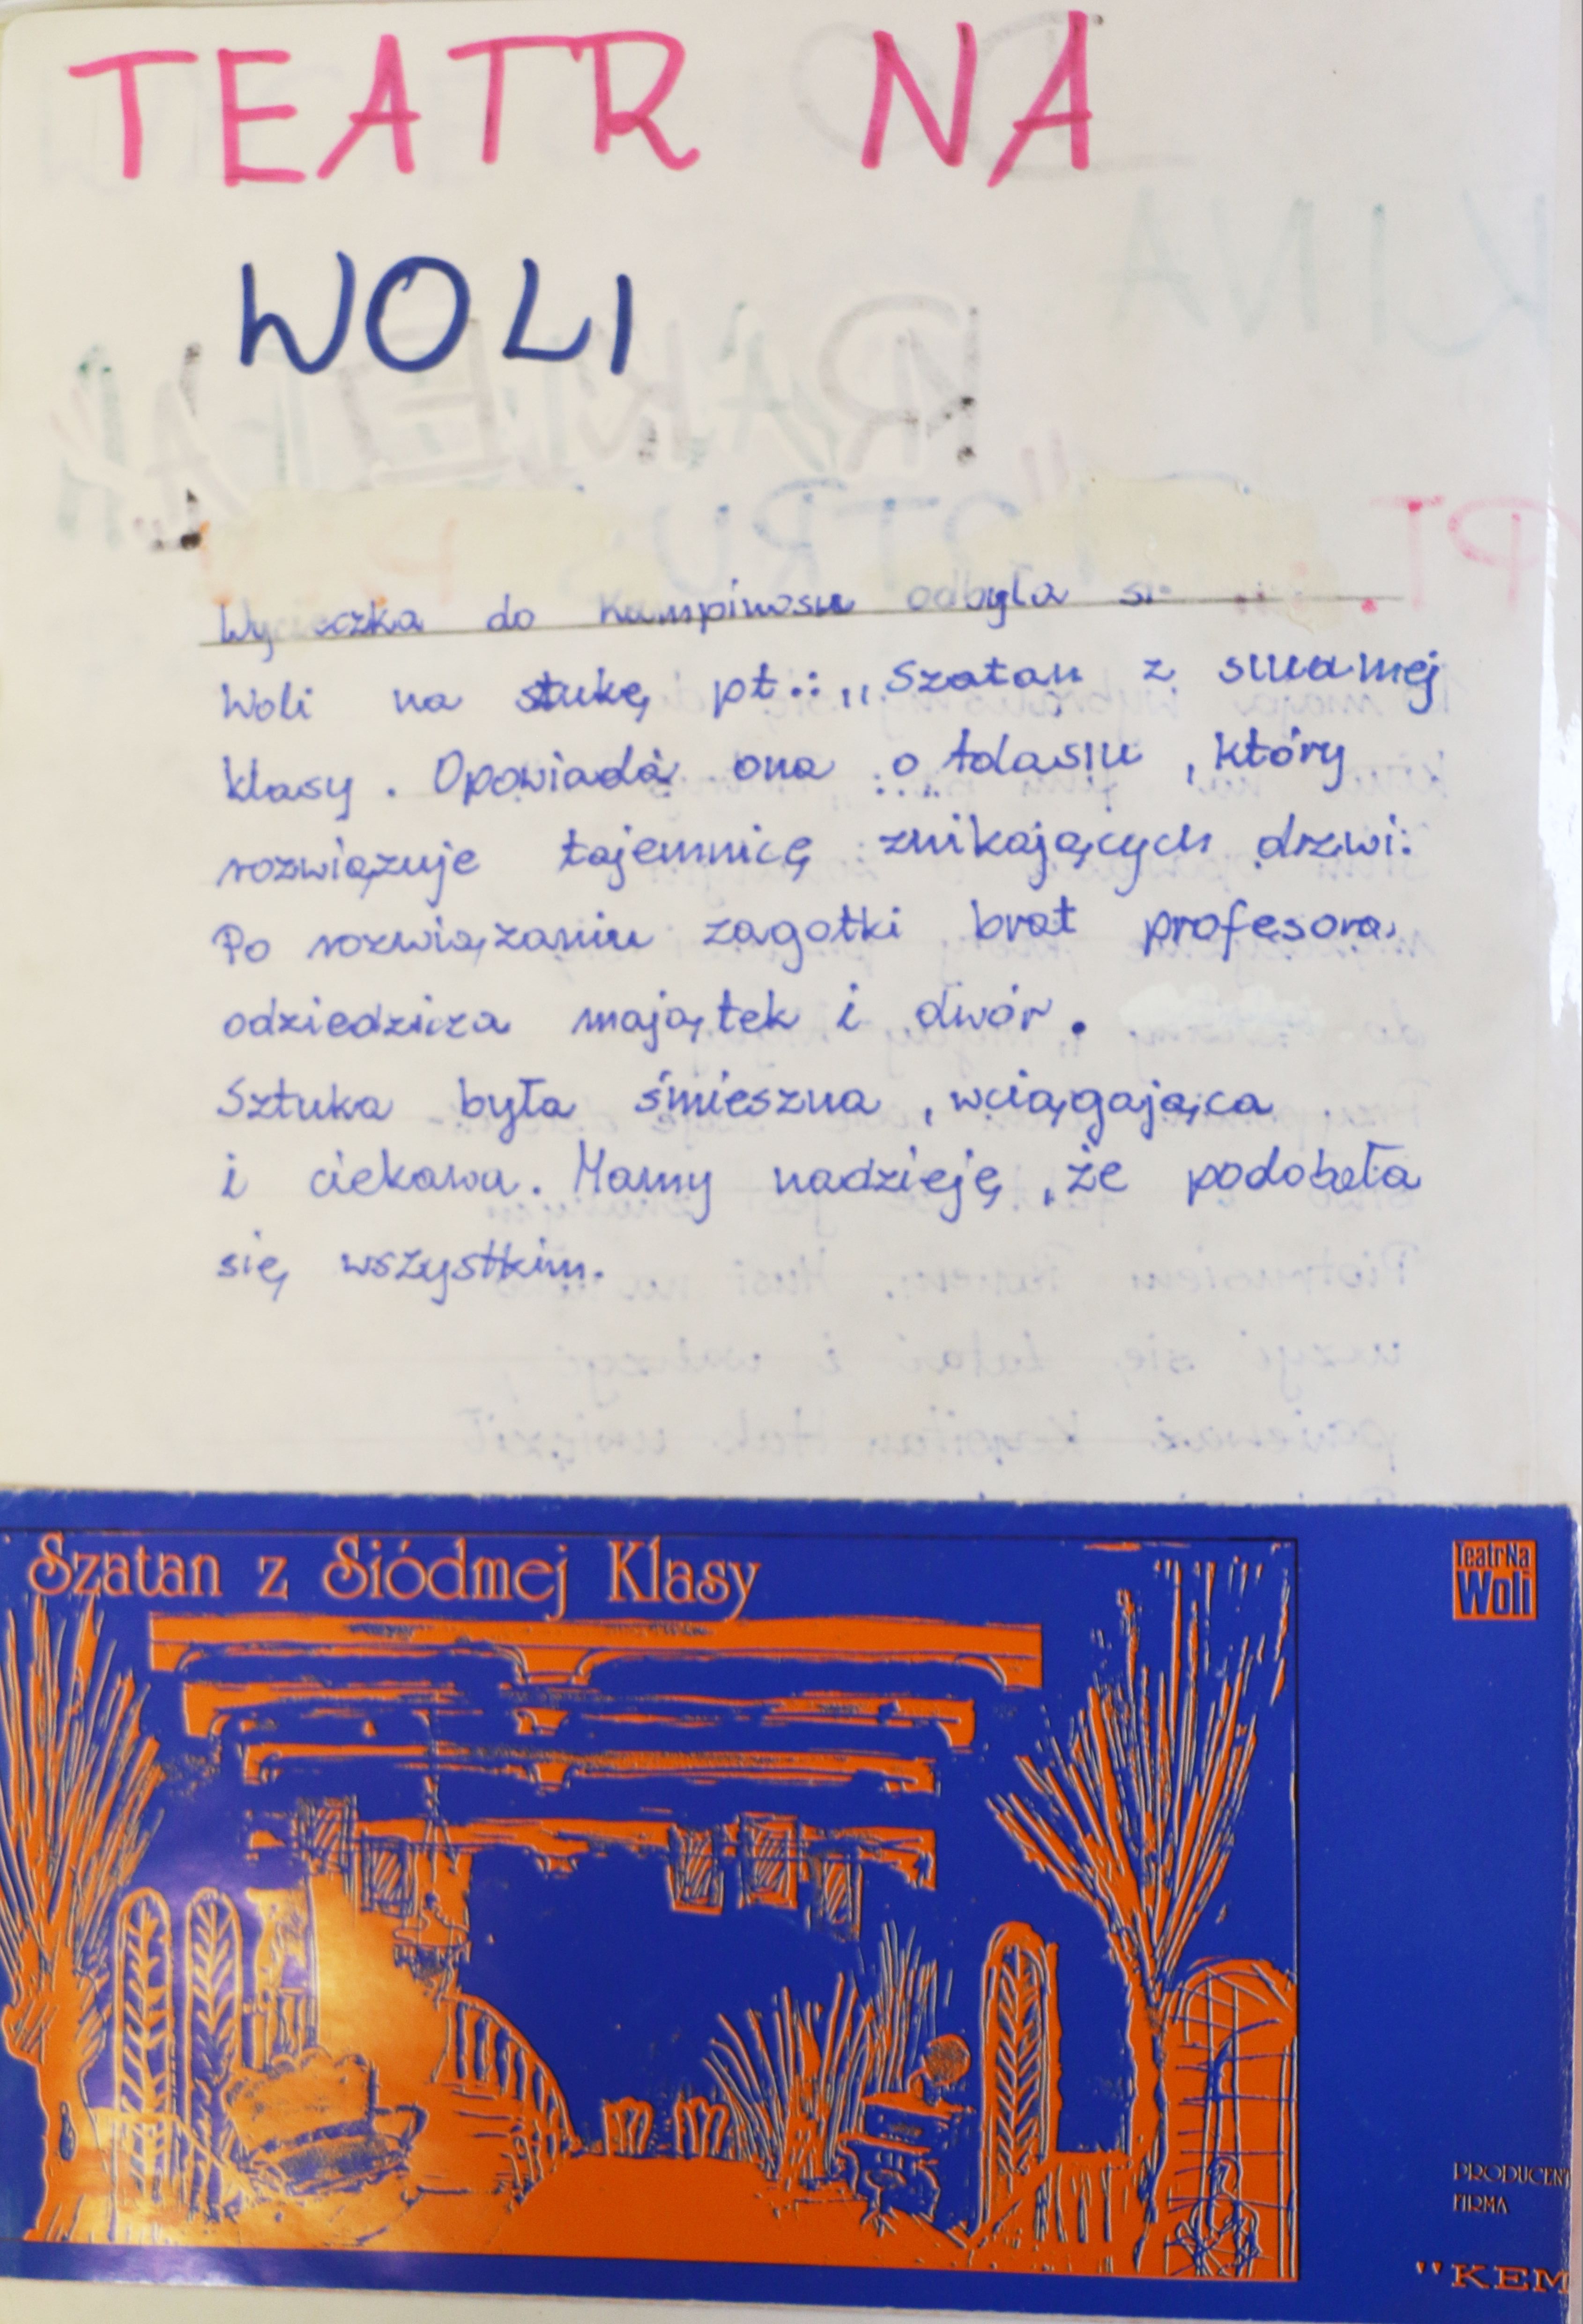 TEATR NA
WOLI
Wycieczka do Kampinosu odbyła si
Woli na stukę pt.: „Szatan z siudmej
klasy. Opowiada ona o Adasiu, który
rozwiązuje tajemnicę znikających drzwi.
Po rozwiązaniu zagatki brat profesora
odziedzicza majątek i dwór.
Sztuka była śmieszna, wciągająca
i ciekawa. Mamy nadzieję, że podobała
się wszystkim.
Szatan z Siódmej Klasy
Teatr Na
Woli
PRODUCENT
FIRMA
"KEM